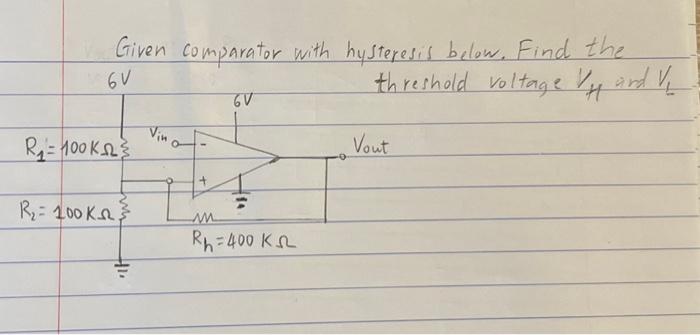 Given comparator with hysteresis below. Find the
threshold voltage V_H and V_L
6V
6V
Vin
-
R₁=100KΩ
Vout
+
R₂=100KΩ
Rh=400KΩ